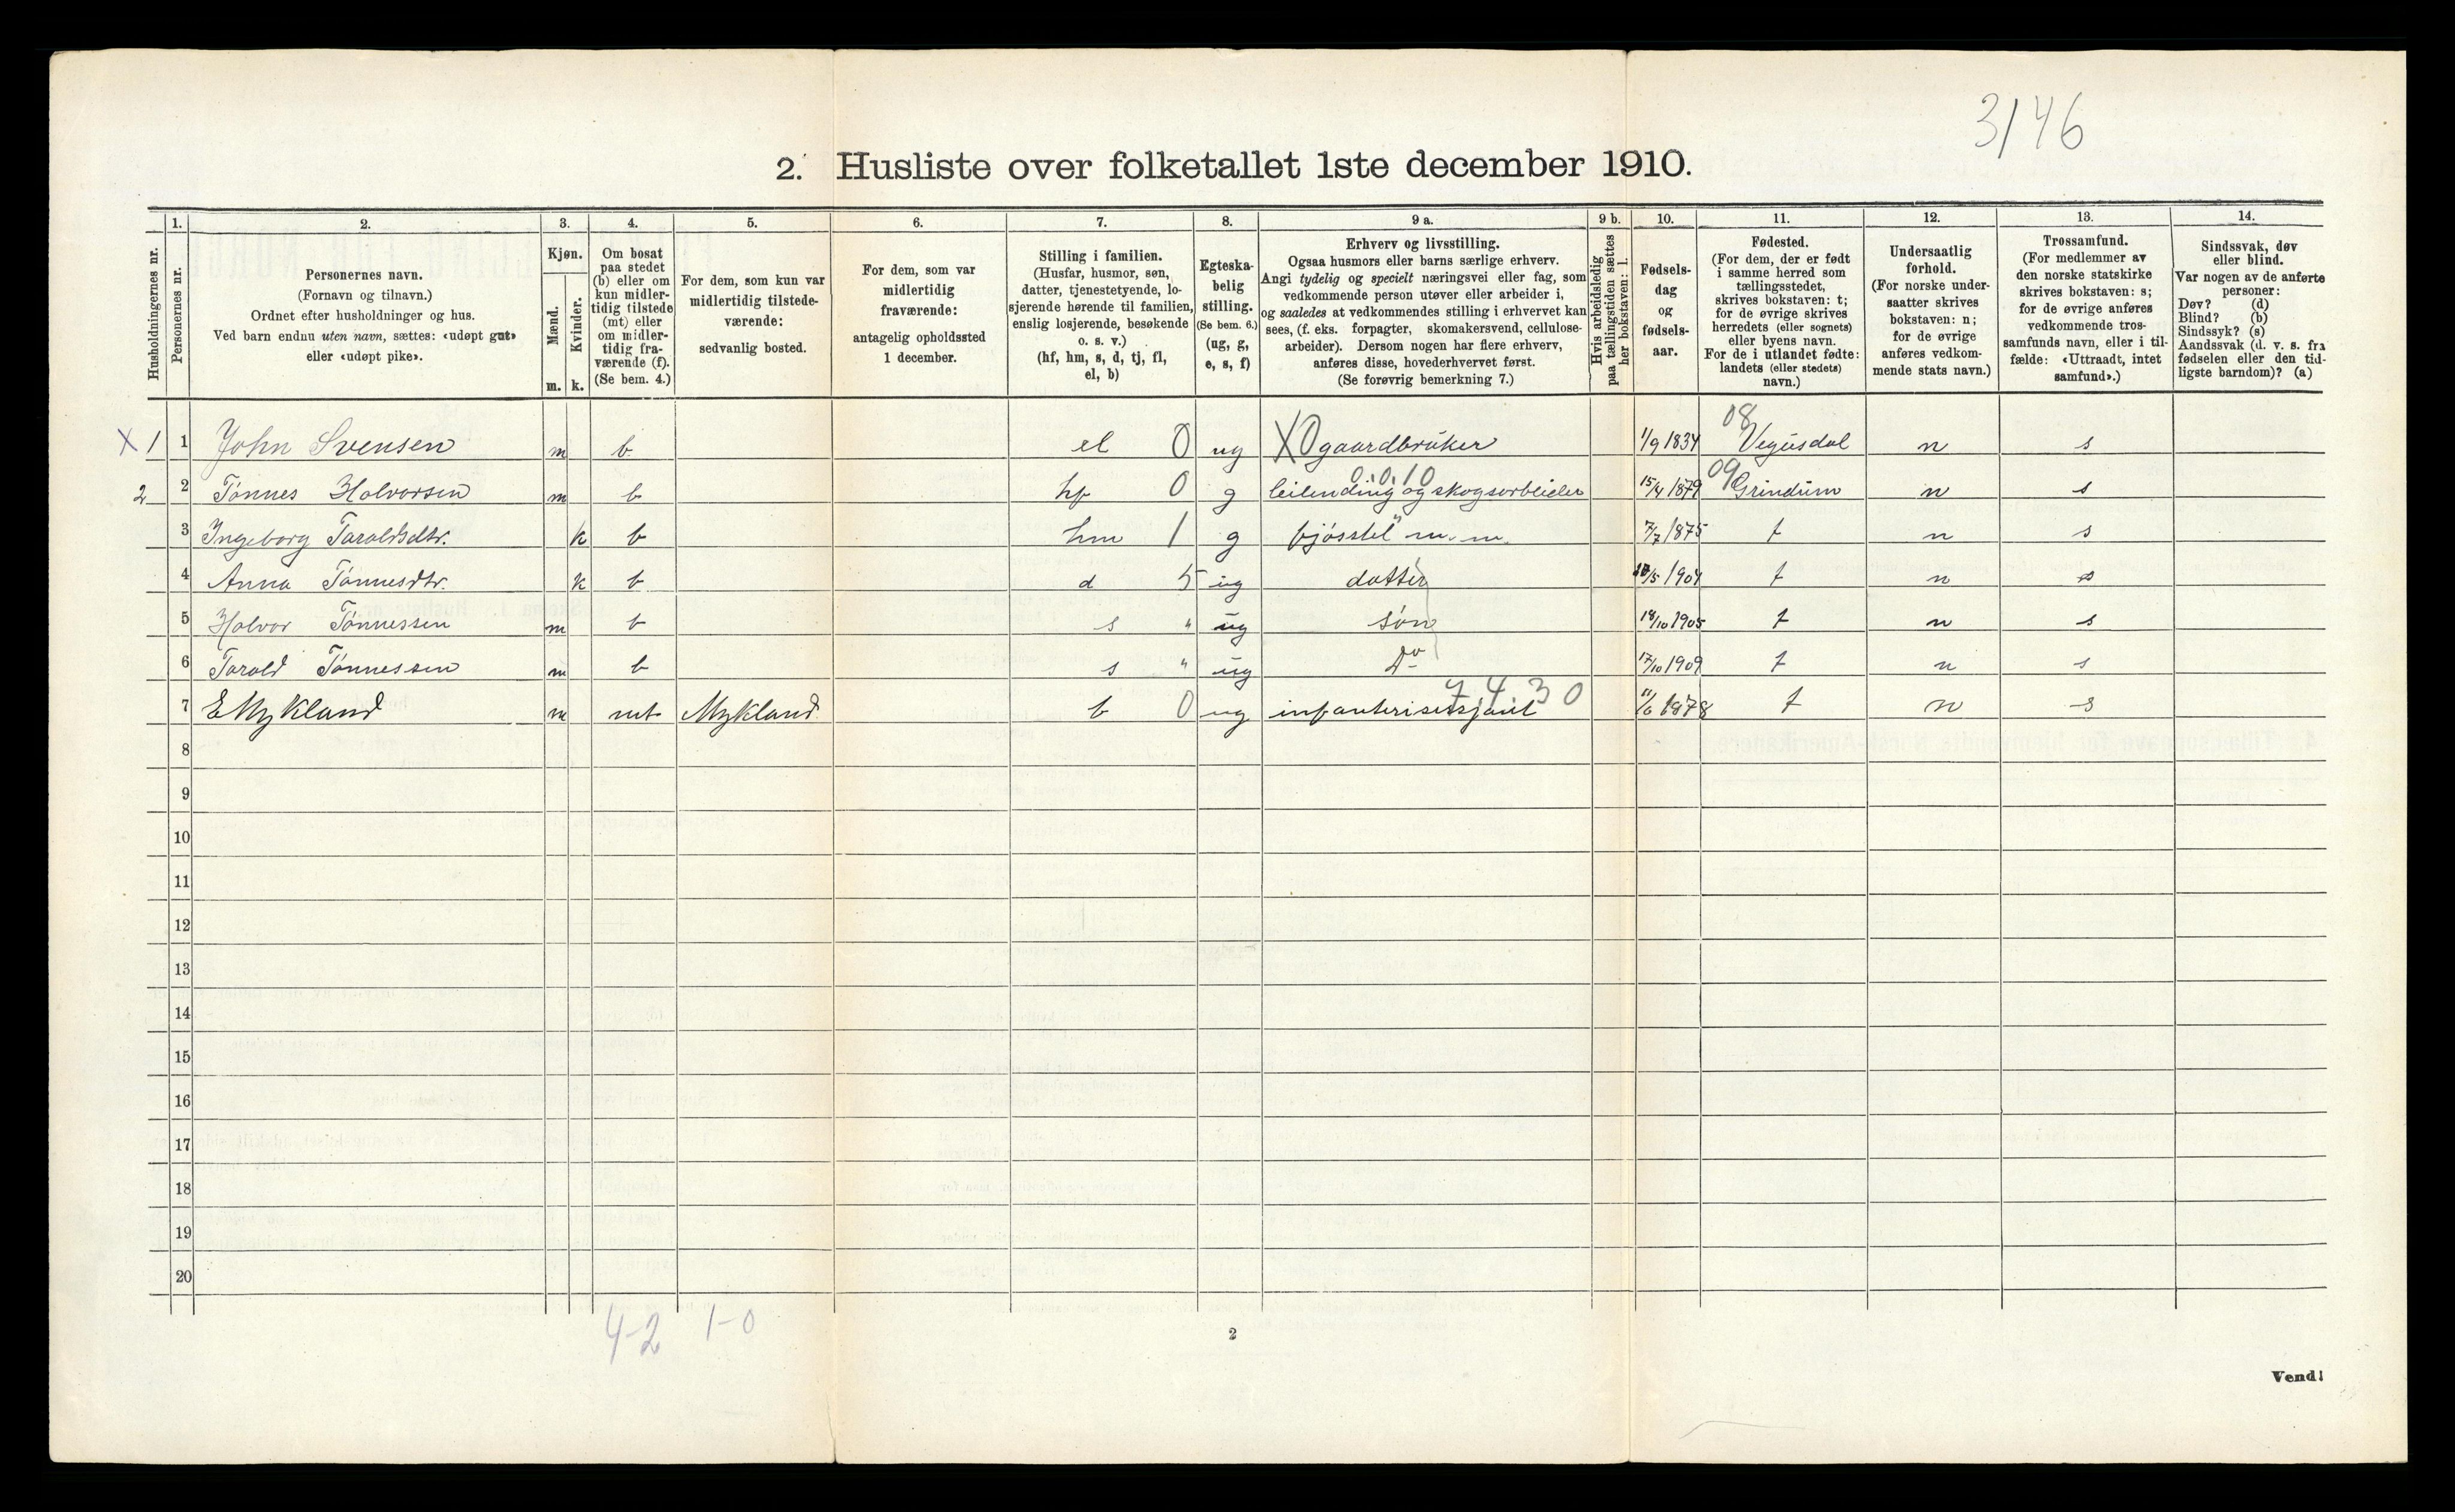 3/46
2. Husliste over folketallet 1ste december 1910.
Husholdningernes nr.
1. Personernes nr.
2. Personernes navn.
(Fornavn og tilnavn.)
Ordnet efter husholdninger og hus.
Ved barn endnu uten navn, sættes: «udøpt gut»
eller «udøpt pike».
3. Kjøn.
Mænd. m.
Kvinder. k.
4. Om bosat
paa stedet
(b) eller om
kun midler-
tidig tilstede
(mt) eller
om midler-
tidig fra-
værende (f).
(Se bem. 4.)
5. For dem, som kun var
midlertidig tilstede-
værende:
sedvanlig bosted.
6. For dem, som var
midlertidig
fraværende:
antagelig opholdssted
1 december.
7. Stilling i familien.
(Husfar, husmor, søn,
datter, tjenestetyende, lo-
sjerende hørende til familien,
enslig losjerende, besøkende
o. s. v.)
(hf, hm, s, d, tj, fl,
el, b)
8. Egteska-
belig
stilling.
(Se bem. 6.)
(ug, g,
e, s, f)
9 a. Erhverv og livsstilling.
Ogsaa husmors eller barns særlige erhverv.
Angi tydelig og specielt næringsvei eller fag, som
vedkommende person utøver eller arbeider i,
og saaledes at vedkommendes stilling i erhvervet kan
sees, (f. eks. forpagter, skomakersvend, cellulose-
arbeider). Dersom nogen har flere erhverv,
anføres disse, hovederhvervet først.
(Se forøvrig bemerkning 7.)
9 b. Hvis arbeidsledig
paa tællingstiden sættes
her bokstaven: l.
10. Fødsels-
dag
og
fødsels-
aar.
11. Fødested.
(For dem, der er født
i samme herred som
tællingsstedet,
skrives bokstaven: t;
for de øvrige skrives
herredets (eller sognets)
eller byens navn.
For de i utlandet fødte:
landets (eller stedets)
navn.)
12. Undersaatlig
forhold.
(For norske under-
saatter skrives
bokstaven: n;
for de øvrige
anføres vedkom-
mende stats navn.)
13. Trossamfund.
(For medlemmer av
den norske statskirke
skrives bokstaven: s;
for de øvrige anføres
vedkommende tros-
samfunds navn, eller i til-
fælde: «Uttraadt, intet
samfund».)
14. Sindssvak, døv
eller blind.
Var nogen av de anførte
personer:
Døv? (d)
Blind? (b)
Sindssyk? (s)
Aandssvak (d. v. s. fra
fødselen eller den tid-
ligste barndom)? (a)
08
X 1 1 John Svensen m b el 0 ug X0 gaardbruker 1/9 1834 Vegusdal n s
0.0.10 09
2 2 Tönnes Halvorsen m b hf 0 g leilending og skogsarbleider 15/4 1879 Grindum n s
3 Ingeborg Taraldsdtr. k b hm 1 g fjösstel m. m. 7/7 1875 t n s
4 Anna Tönnesdtr. k b d 5 ug datter /5 1904 t n s
5 Halvor Tönnessen m b s " ug sön 18/10 1905 t n s
6 Tarald Tönnessen m b s " ug Do 17/10 1909 t n s
7.4.30
7 E Mykland m mt Mykland b 0 ug infanterisersjant 11/6 1878 t n s
8
9
10
11
12
13
14
15
16
17
18
19
20
4-2 1-0
2
Vend!